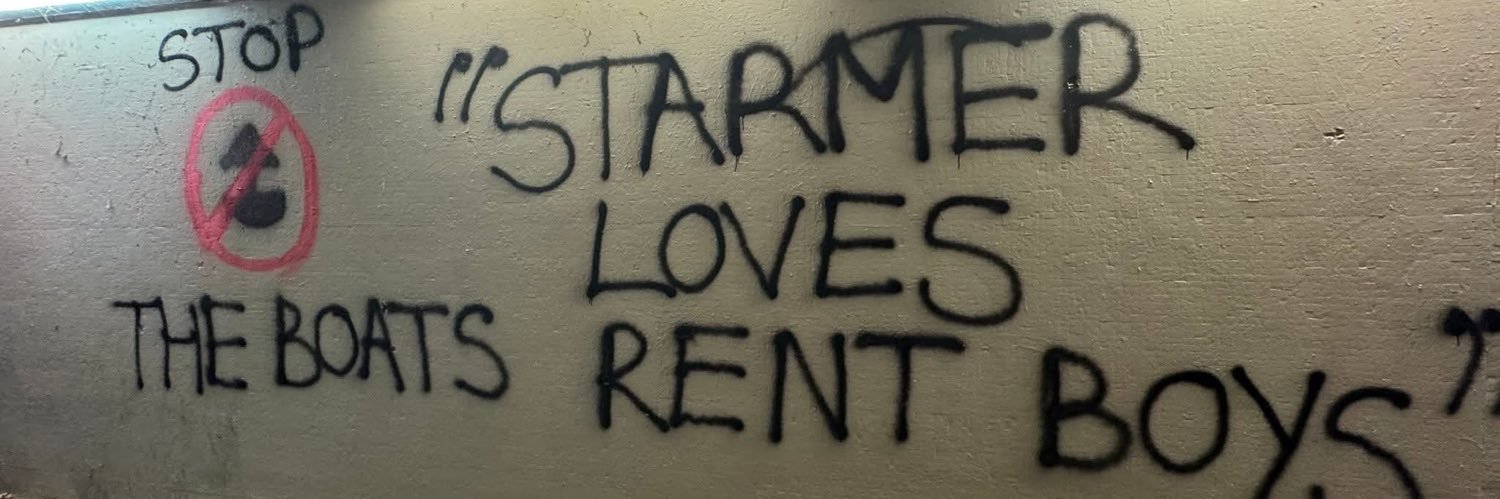 STOP
THE BOATS
"STARMER
LOVES
RENT BOYS"